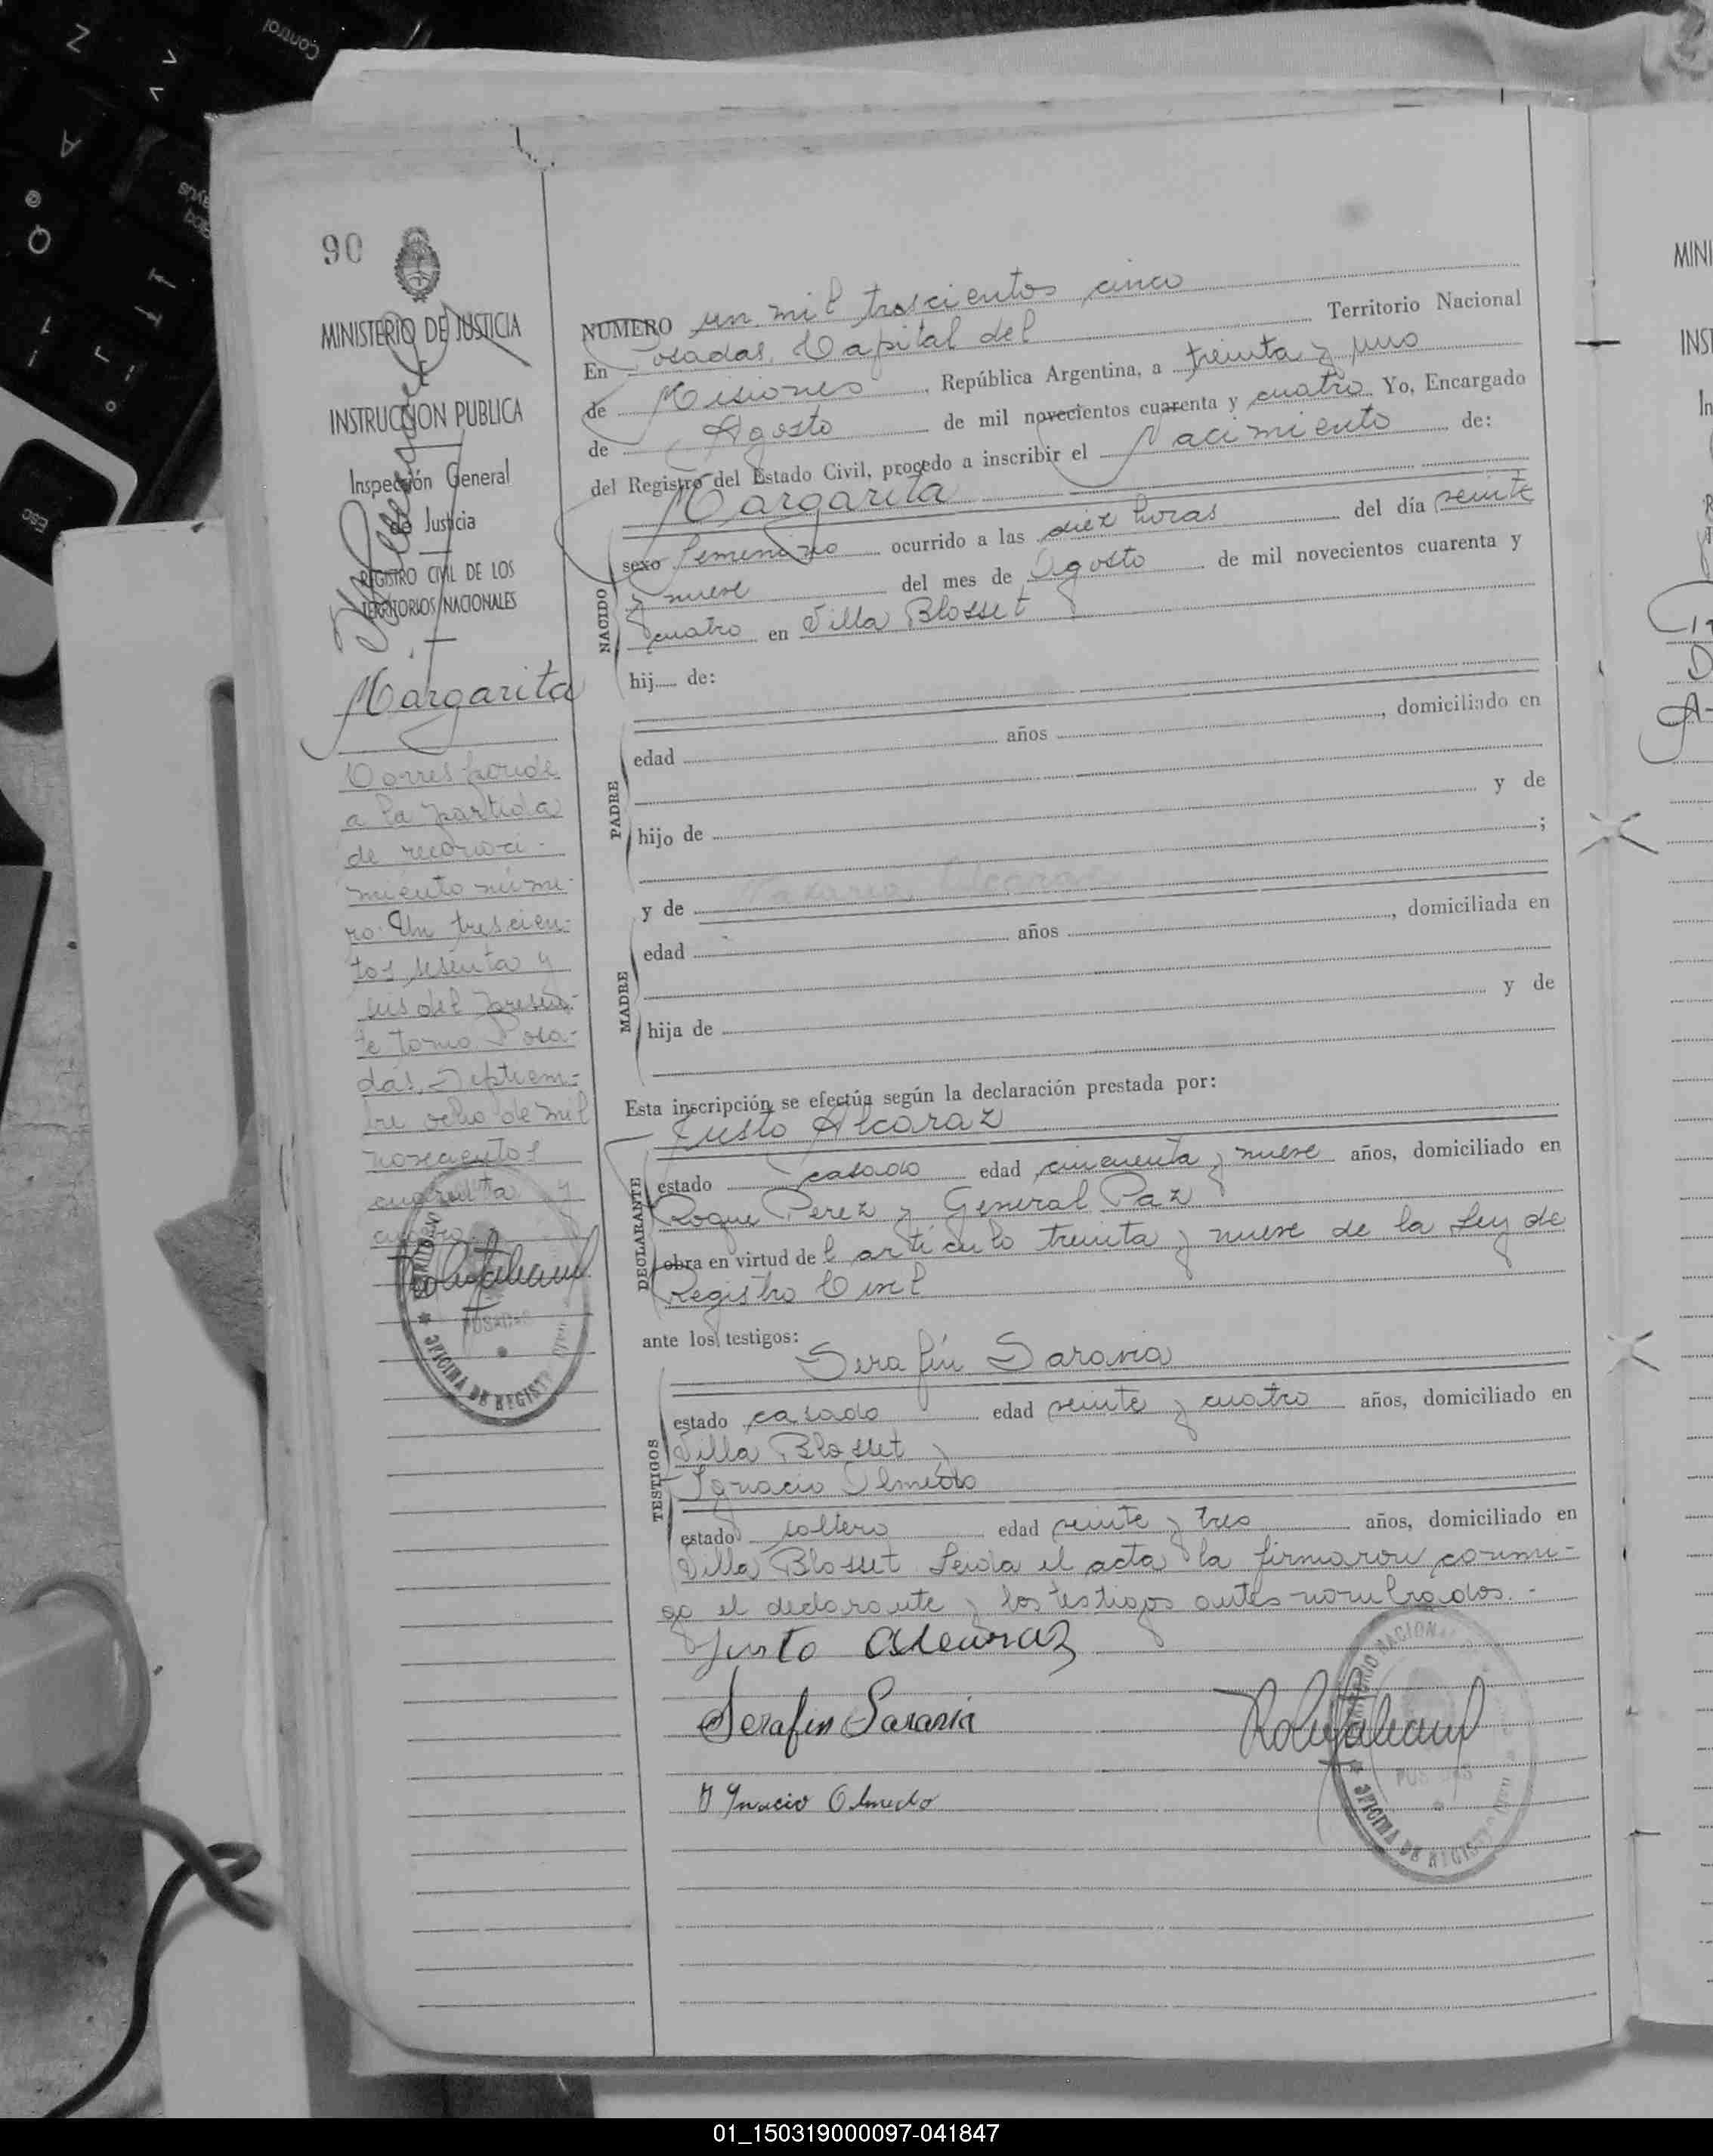 90
MINISTERIO DE JUSTICIA
INSTRUCCION PUBLICA
Inspección General
de Justicia
REGISTRO CIVIL DE LOS
TERRITORIOS NACIONALES
Margarita
Corresponde
a la partida
de reconoci-
miento núme-
ro Un trescien-
tos sesenta y
seis del presen-
te tomo Posa-
das, Septiem-
bre ocho de mil
novecientos
cuarenta y
cuatro.
NUMERO un mil trescientos cinco
En Posadas, Capital del Territorio Nacional
de Misiones, República Argentina, a treinta y uno
de Agosto de mil novecientos cuarenta y cuatro Yo, Encargado
del Registro del Estado Civil, procedo a inscribir el Nacimiento de:
Margarita
NACIDO
sexo femenino ocurrido a las diez horas del día veinte
y nueve del mes de Agosto de mil novecientos cuarenta y
cuatro en Villa Blosset
hij de:
PADRE
edad años, domiciliado en
hijo de y de
;
y de
MADRE
edad años, domiciliada en
hija de y de
Esta inscripción se efectúa según la declaración prestada por:
Justo Alcaraz
DECLARANTE
estado casado edad cincuenta y nueve años, domiciliado en
Roque Perez y General Paz
obra en virtud del artículo treinta y nueve de la Ley de
Registro Civil
ante los testigos:
Serafín Saravia
TESTIGOS
estado casado edad veinte y cuatro años, domiciliado en
Villa Blosset y
Ignacio Olmedo
estado soltero edad veinte y tres años, domiciliado en
Villa Blosset Leida el acta la firmaron conmi-
go el declarante y los testigos antes nombrados.-
Justo Alcaraz
Serafin Saravia
Ynacio Olmedo
POSADAS
OFICINA DE REGISTRO
Control
Esc
MINI
INST
01_150319000097-041847